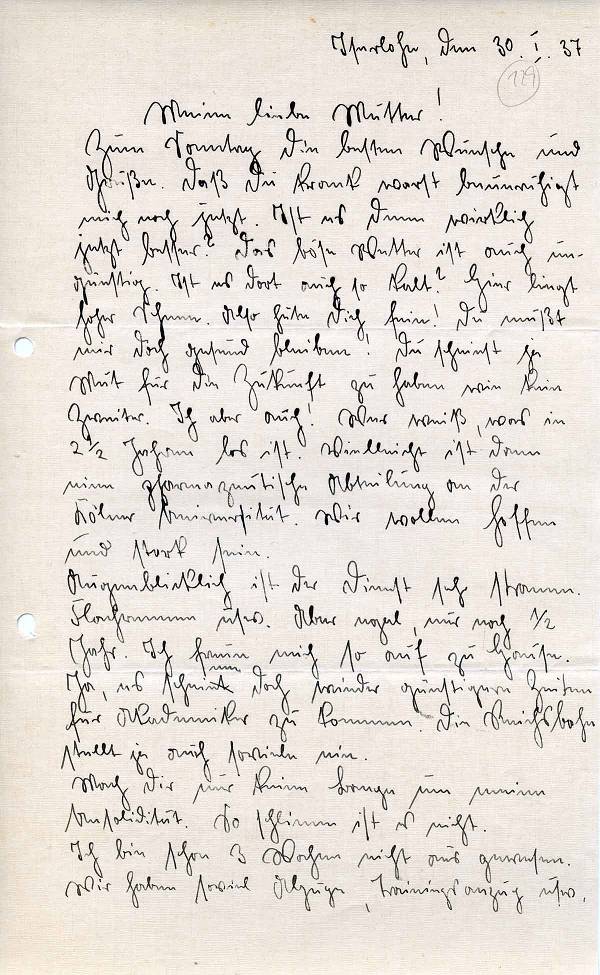 Iserlohn, den 30. I. 37
129
Meine liebe Mutter!
Zum Sonntag die besten Wünsche und
Grüße. Daß Du krank warst beunruhigt
mich noch jetzt. Ist es denn wirklich
jetzt besser? Das böse Wetter ist auch un-
günstig. Ist es dort auch so kalt? Hier liegt
hoher Schnee. Also hüte Dich fein! Du mußt
mir doch gesund bleiben! Du scheinst ja
Mut für die Zukunft zu haben wie kein
Zweiter. Ich aber auch! Wer weiß, was in
2 1/2 Jahren los ist. Vielleicht ist dann
eine pharmazeutische Abteilung an der
Kölner Universität. Wir wollen hoffen
und stark sein.
Augenblicklich ist der Dienst sehr stramm.
Flachrennen usw. Aber egal, nur noch 1/2
Jahr. Ich freue mich so auf zu Hause.
Ja, es scheinen doch wieder günstigere Zeiten
für Akademiker zu kommen. Die Reichsbahn
stellt ja auch soviele ein.
Mach Dir nur keine Sorge um meine
Unsolidität. So schlimm ist es nicht.
Ich bin schon 3 Wochen nicht aus gewesen.
Wir haben soviel Abzüge, Trainingsanzug usw.